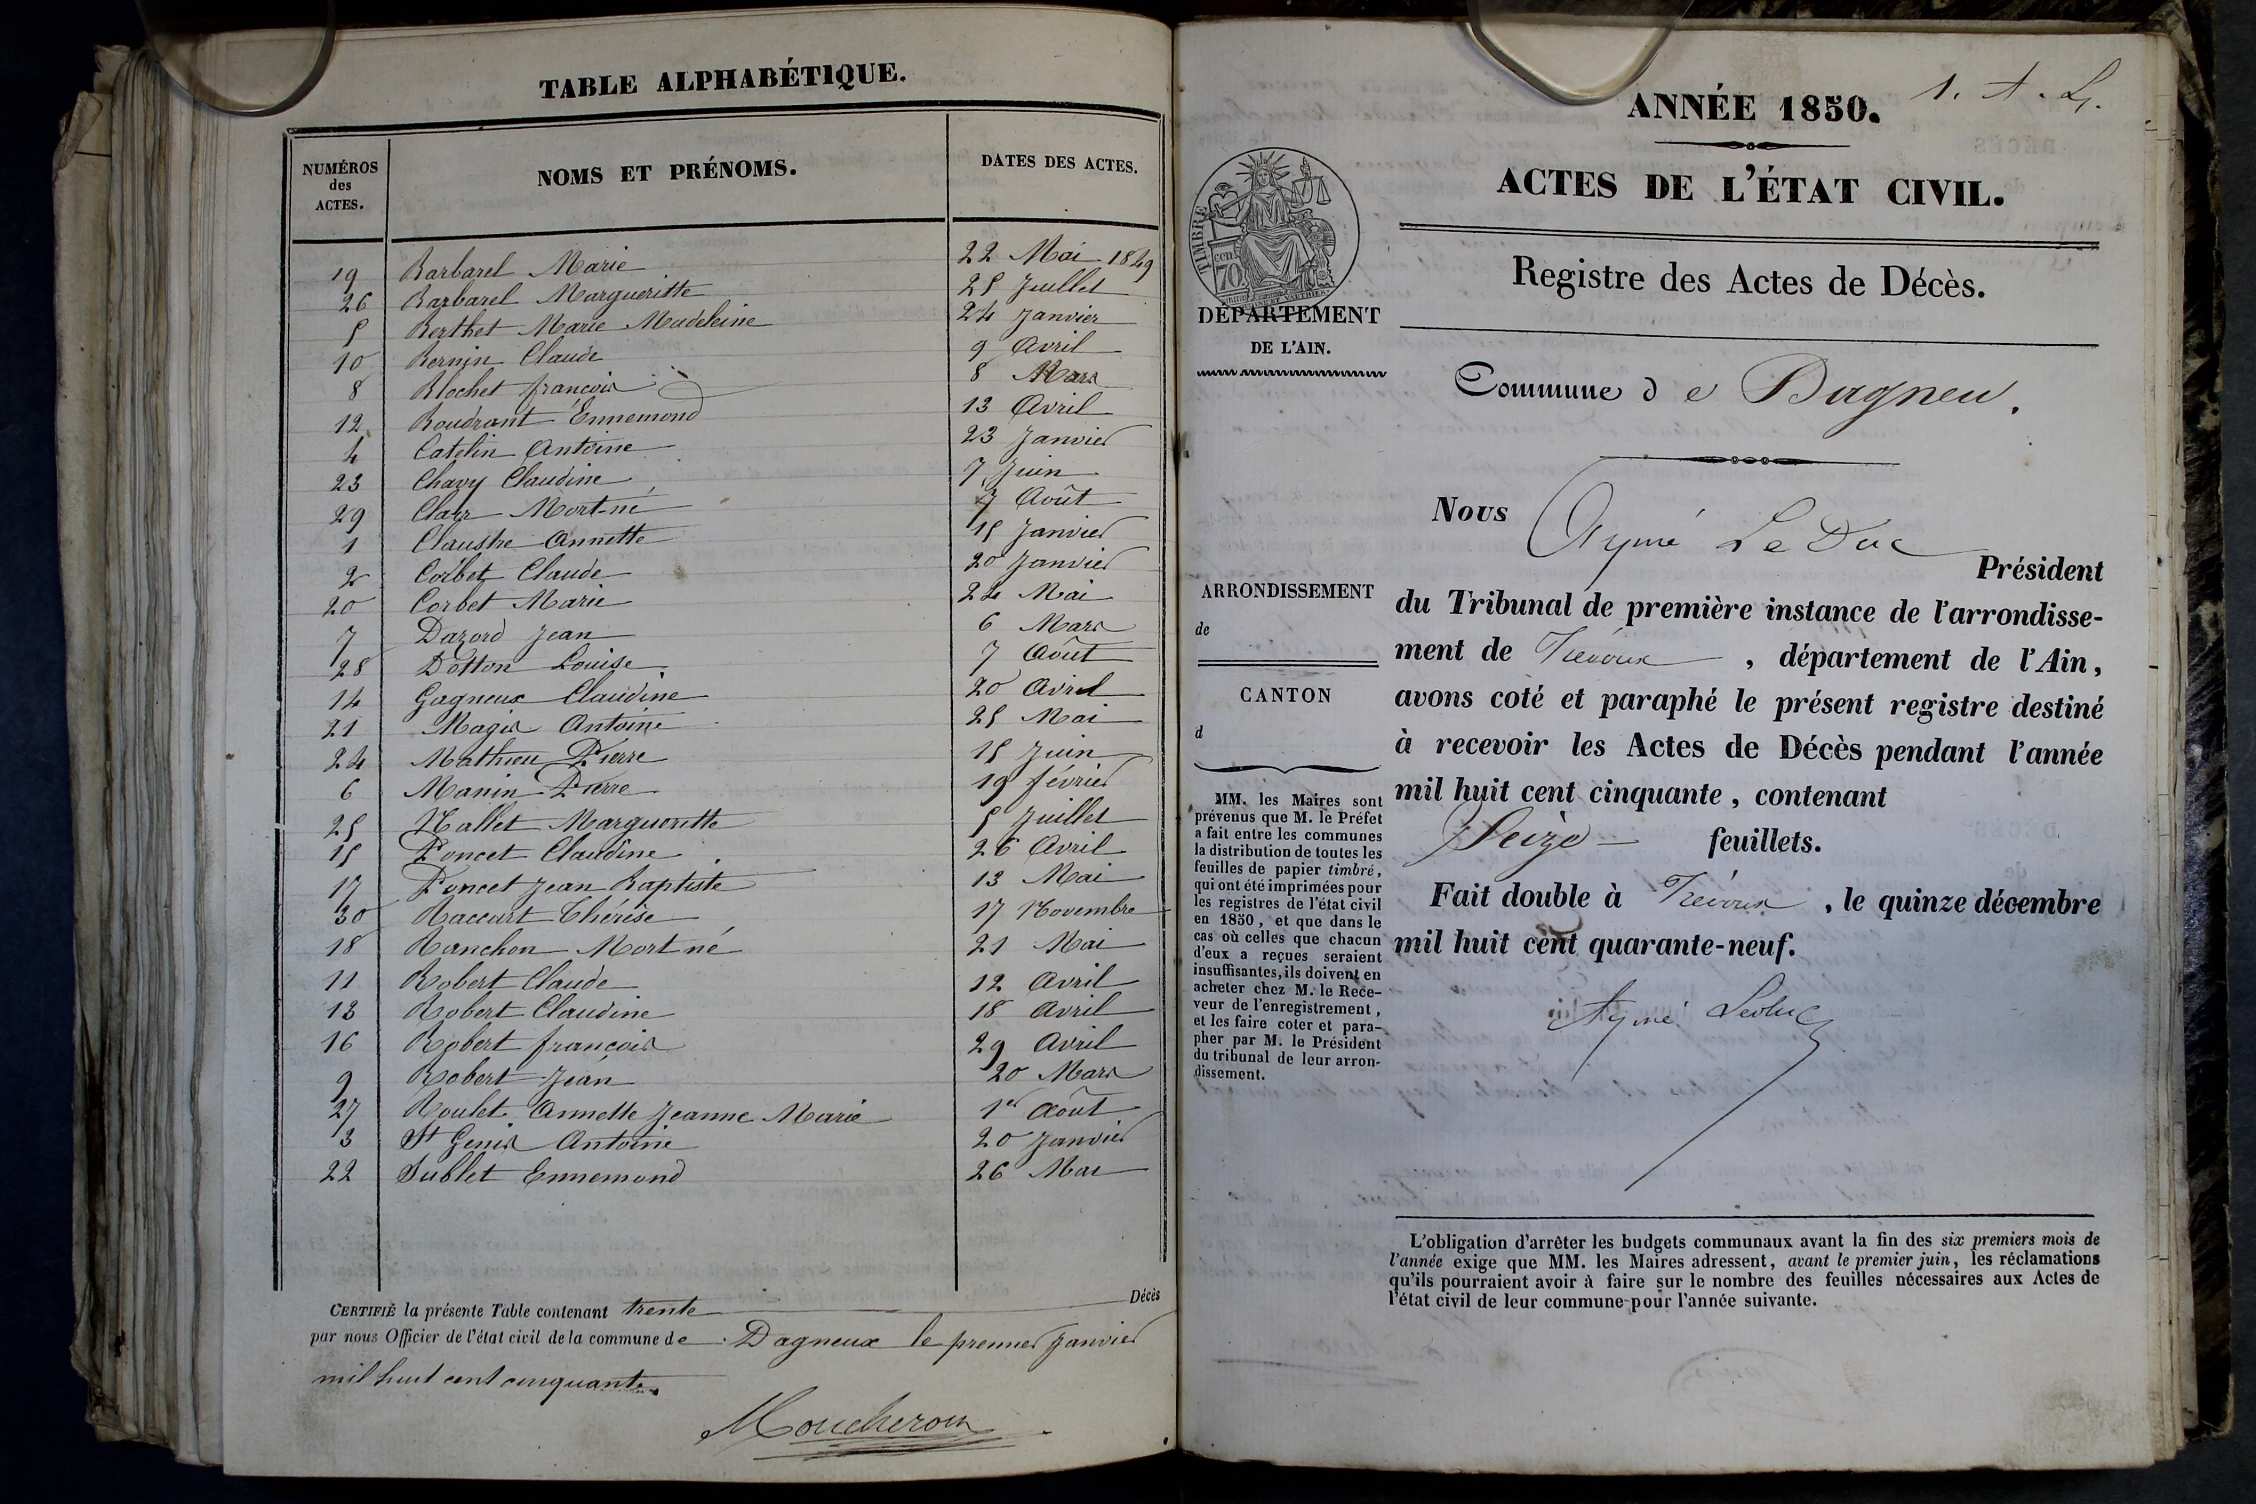 TABLE ALPHABÉTIQUE.
NUMÉROS des ACTES. NOMS ET PRÉNOMS. DATES DES ACTES.
19 Barbarel Marie 22 Mai 1849
26 Barbarel Margueritte 25 Juillet
5 Berthet Marie Madeleine 24 Janvier
10 Bernin Claude 9 Avril
8 Blochet françois 8 Mars
12 Boudrant Ennemond 13 Avril
4 Catelin Antoine 23 Janvier
23 Chavy Claudine 7 Juin
29 Clair Mort-né 7 Août
1 Claustre Annette 15 Janvier
2 Corbet Claude 20 Janvier
20 Corbet Marie 24 Mai
7 Dazord Jean 6 Mars
28 Dotton Louise 7 Août
14 Gagneux Claudine 20 Avril
21 Magis Antoine 25 Mai
24 Mathieu Pierre 15 Juin
6 Manin Pierre 19 février
25 Nallet Margueritte 5 Juillet
15 Poncet Claudine 26 Avril
17 Poncet Jean Baptiste 13 Mai
30 Raccurt Thérèse 17 Novembre
18 Ranchon Mort né 21 Mai
11 Robert Claude 12 Avril
13 Robert Claudine 18 Avril
16 Robert françois 29 Avril
9 Robert Jean 20 Mars
27 Roulet Annette Jeanne Marie 1er Août
3 St Genis Antoine 20 Janvier
22 Sublet Ennemond 26 Mai
CERTIFIÉ la présente Table contenant trente Décès
par nous Officier de l'état civil de la commune de Dagneux le premier Janvier
mil huit cent cinquante.
Moucheron
1. A. L.
ANNÉE 1850.
ACTES DE L'ÉTAT CIVIL.
TIMBRE
70 cen
DÉPARTEMENT
DE L'AIN.
Registre des Actes de Décès.
Commune de Dagneu.
ARRONDISSEMENT
de
CANTON
d
MM. les Maires sont
prévenus que M. le Préfet
a fait entre les communes
la distribution de toutes les
feuilles de papier timbré,
qui ont été imprimées pour
les registres de l'état civil
en 1850, et que dans le
cas où celles que chacun
d'eux a reçues seraient
insuffisantes, ils doivent en
acheter chez M. le Rece-
veur de l'enregistrement,
et les faire coter et para-
pher par M. le Président
du tribunal de leur arron-
dissement.
Nous Aymé Le Duc
Président
du Tribunal de première instance de l'arrondisse-
ment de Trévoux, département de l'Ain,
avons coté et paraphé le présent registre destiné
à recevoir les Actes de Décès pendant l'année
mil huit cent cinquante, contenant
Seize feuillets.
Fait double à Trévoux, le quinze décembre
mil huit cent quarante-neuf.
Aymé Leduc
L'obligation d'arrêter les budgets communaux avant la fin des six premiers mois de
l'année exige que MM. les Maires adressent, avant le premier juin, les réclamations
qu'ils pourraient avoir à faire sur le nombre des feuilles nécessaires aux Actes de
l'état civil de leur commune pour l'année suivante.